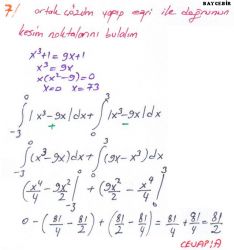 BAYÇEBİR
7/ ortak çözüm yapıp eğri ile doğrunun
kesim noktalarını bulalım
x³+1 = 9x+1
x³ = 9x
x(x²-9)=0
x=0 x=∓3
∫₋₃⁰ |x³-9x|dx + ∫₀³ |x³-9x|dx
+ -
∫₋₃⁰ (x³-9x)dx + ∫₀³ (9x-x³)dx
(x⁴/4 - 9x²/2 |₋₃⁰ + (9x²/2 - x⁴/4 |₀³
0 - (81/4 - 81/2) + (81/2 - 81/4) = 81/4 + 81/4 = 81/2
CEVAP: A